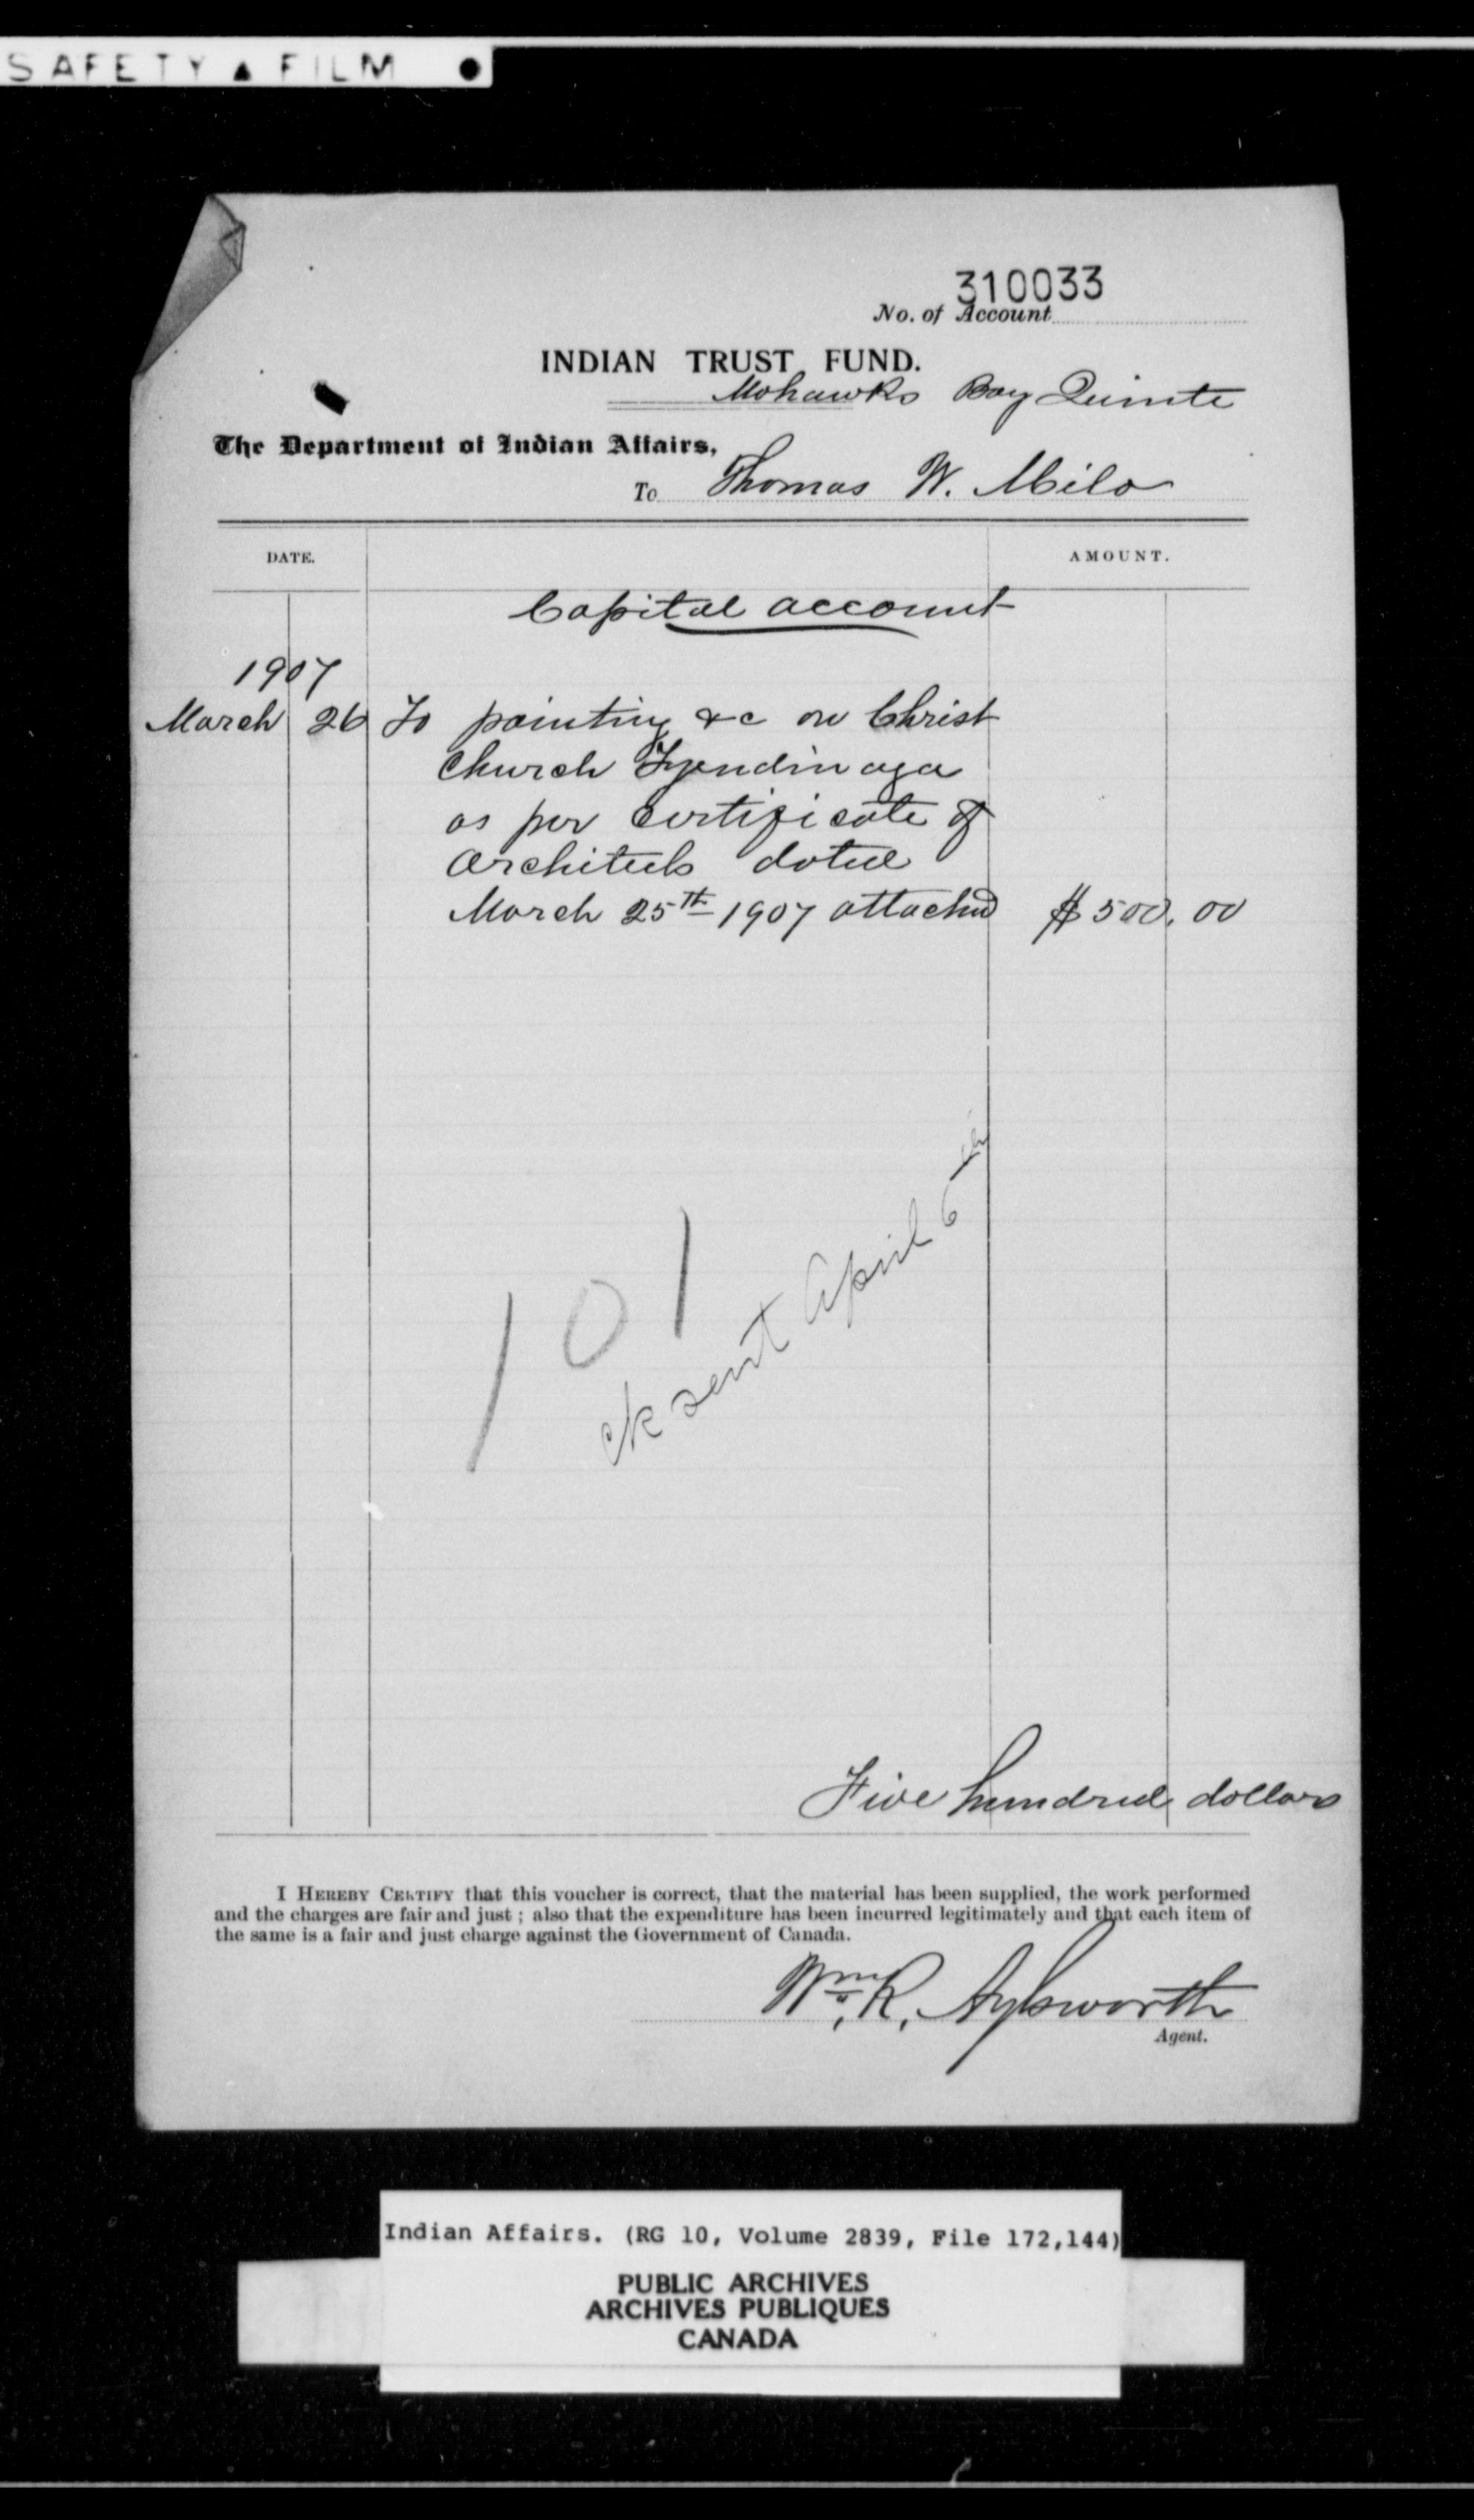 SAFETY ▲ FILM ●
310033
No. of Account
INDIAN TRUST FUND.
Mohawks Bay Quinte
The Department of Indian Affairs,
To Thomas W. Milo
DATE.
AMOUNT.
Capital account
1907
March 26 To painting &c on Christ
Church Tyendinaga
as per certificate of
Architects dated
March 25th 1907 attached $500.00
101
ck sent April 6th
Five hundred dollars
I HEREBY CERTIFY that this voucher is correct, that the material has been supplied, the work performed
and the charges are fair and just ; also that the expenditure has been incurred legitimately and that each item of
the same is a fair and just charge against the Government of Canada.
Wm. R. Aylsworth
Agent.
Indian Affairs. (RG 10, Volume 2839, File 172,144)
PUBLIC ARCHIVES
ARCHIVES PUBLIQUES
CANADA